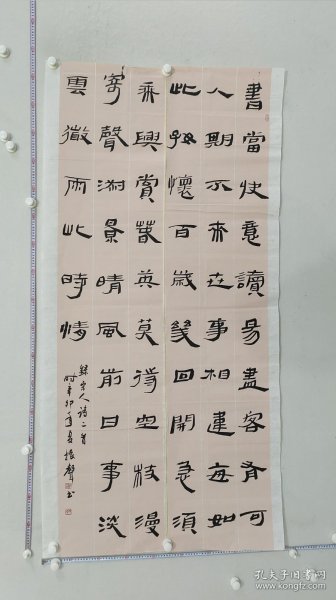 書當快意讀易盡客有可
人期不來世事相違每如
此好懷百歲幾回開急須
乘興賞春英莫待空枝漫
寄聲淑景晴風前日事淡
雲微雨此時情
錄宋人詩二首
时辛卯年夏振聲书
孔夫子旧书网